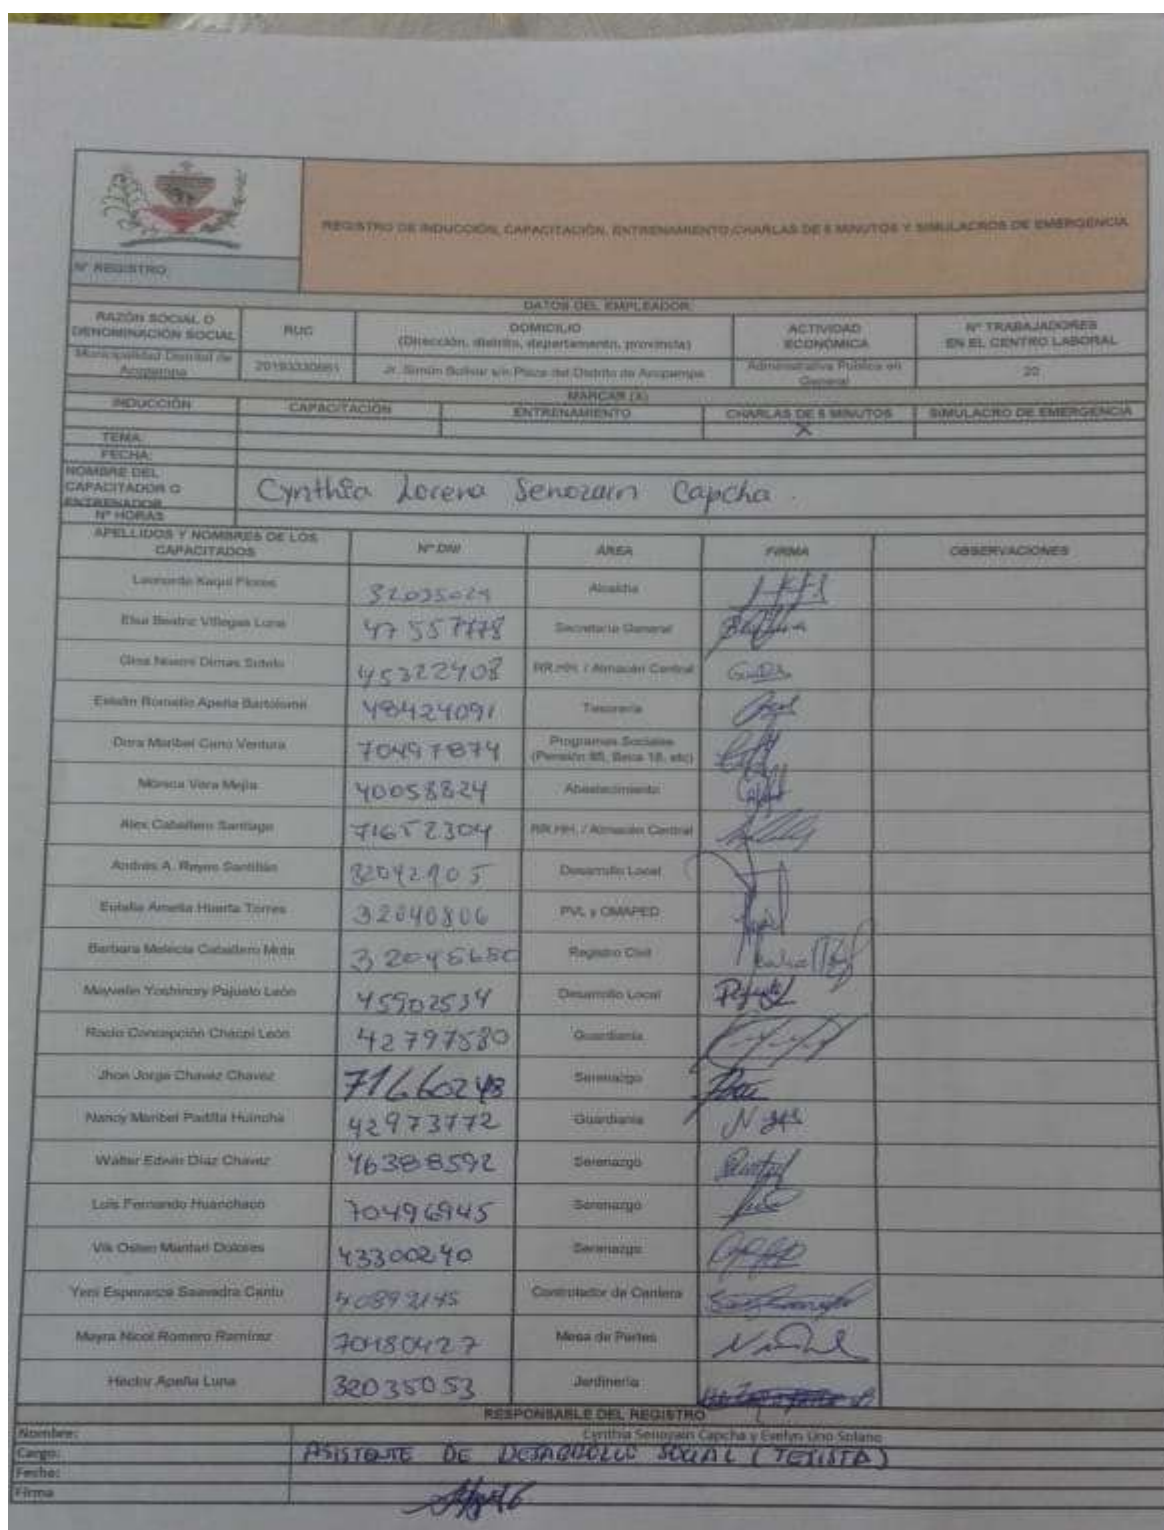 REGISTRO DE INDUCCIÓN, CAPACITACIÓN, ENTRENAMIENTO, CHARLAS DE 5 MINUTOS Y SIMULACROS DE EMERGENCIA
N° REGISTRO:
DATOS DEL EMPLEADOR:
RAZÓN SOCIAL O DENOMINACIÓN SOCIAL RUC DOMICILIO (Dirección, distrito, departamento, provincia) ACTIVIDAD ECONÓMICA N° TRABAJADORES EN EL CENTRO LABORAL
Municipalidad Distrital de Acopampa Jr. Simón Bolívar s/n Plaza del Distrito de Acopampa Administrativa Publica en General 20
MARCAR (X)
INDUCCIÓN CAPACITACIÓN ENTRENAMIENTO CHARLAS DE 5 MINUTOS SIMULACRO DE EMERGENCIA
X
TEMA:
FECHA:
NOMBRE DEL CAPACITADOR O ENTRENADOR Cynthia Lorena Senozain Capcha
N° HORAS
APELLIDOS Y NOMBRES DE LOS CAPACITADOS N° DNI ÁREA FIRMA OBSERVACIONES
Leonardo Kaqui Flores Alcaldía
Elsa Beatriz Villegas Luna Secretaria General
Gina Noemi Dimas Sotelo 45322408 RR.HH. / Almacén Central
Romello Apeña Bartolomé 48424091 Tesorería
Dora Maribel Cano Ventura 70497874 Programas Sociales (Pensión 65, Beca 18, etc)
Mónica Vera Mejía 40058824 Abastecimiento
Alex Caballero Santiago 71652304 RR.HH. / Almacén Central
Andrés A. Reyes Santillán 32042905 Desarrollo Local
Eutalia Amelia Huerta Torres 32040806 PVL y OMAPED
Barbara Melecia Caballero Mota Registro Civil
Mayvelin Yoshinory Pajuelo León 45902534 Desarrollo Local
Rocío Concepción Chacpi León 42797580 Guardianía
Jhon Jorge Chavez Chavez 71660248 Serenazgo
Nancy Maribel Padilla Huincha 42973772 Guardianía
Walter Edwin Díaz Chavez 46388592 Serenazgo
Luis Fernando Huanchaco 70496945 Serenazgo
Vik Osten Mantari Dolores 43300240 Serenazgo
Yeni Esperanza Saavedra Cantu Controlador de Cantera
Mayra Nicol Romero Ramírez 70180427 Mesa de Partes
Héctor Apeña Luna 32035053 Jardinería
RESPONSABLE DEL REGISTRO
Nombre: Cynthia Senozain Capcha y Evelyn Uno Solano
Cargo: ASISTENTE DE DESARROLLO SOCIAL (TESISTA)
Fecha:
Firma